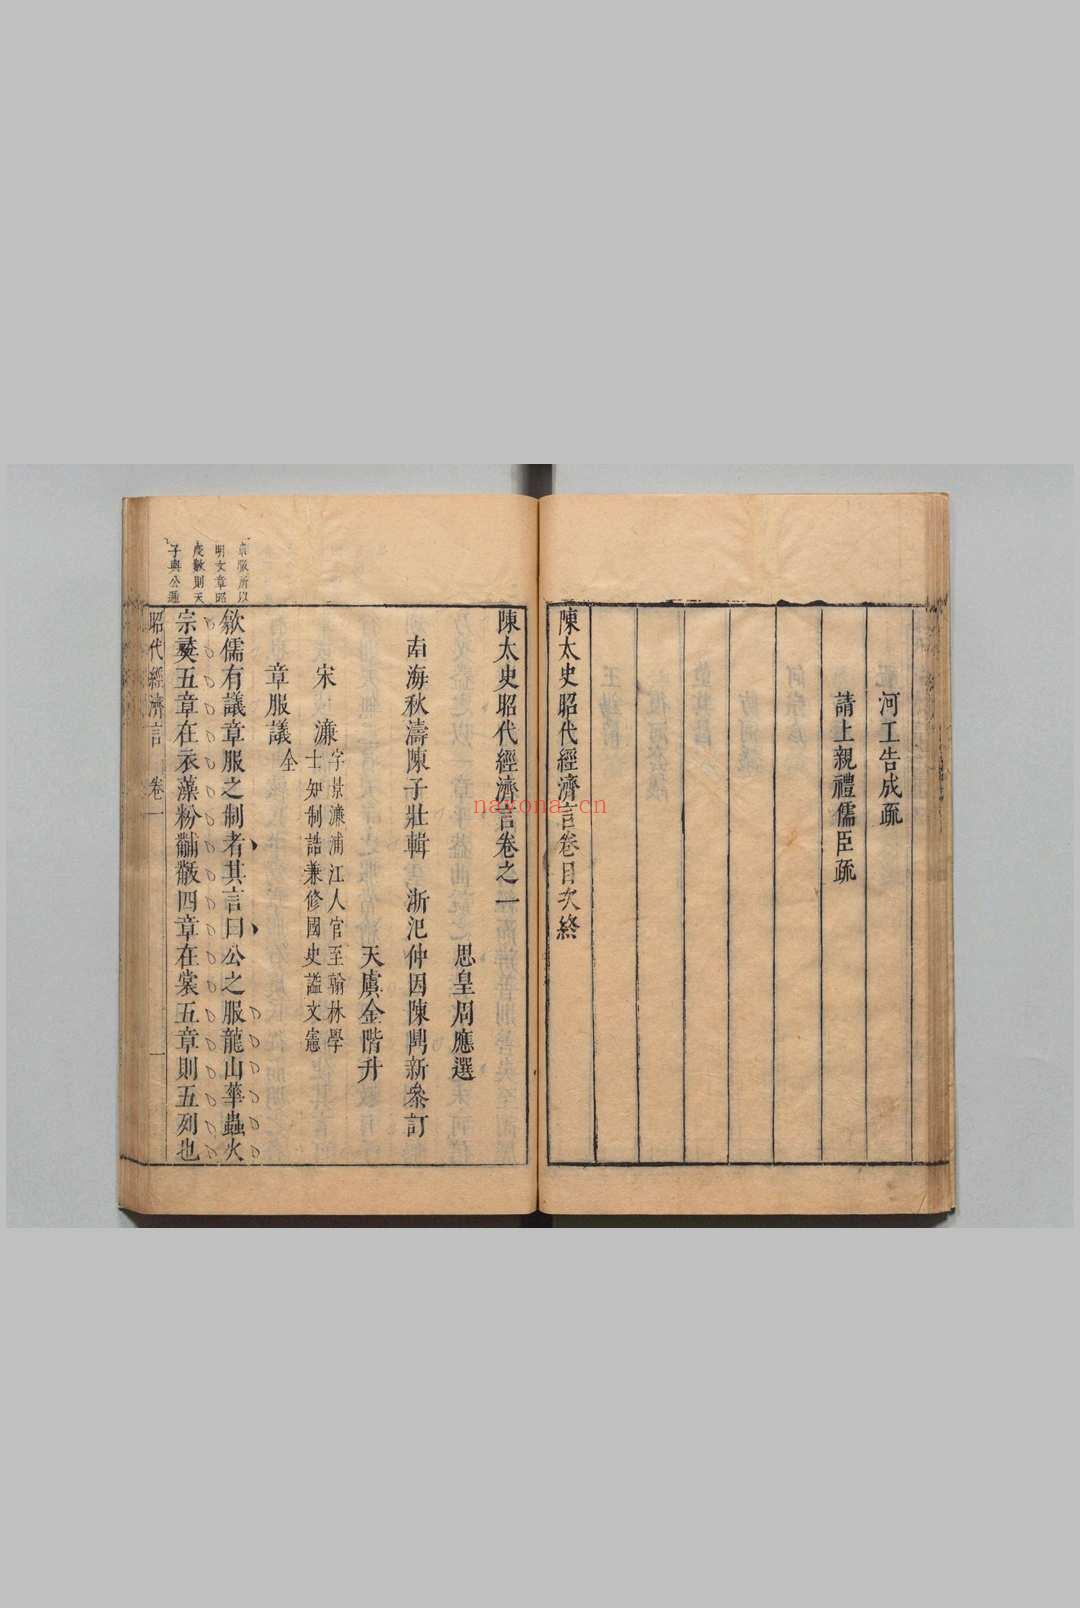 河工告成疏
請上親禮儒臣疏
陳太史昭代經濟言卷目次終
陳太史昭代經濟言卷之一
思皇周應選
南海秋濤陳子壯輯 浙汜仲因陳鳴新參訂
天虞金階升
宋濂 字景濂浦江人官至翰林學
士知制誥兼修國史謚文憲
章服議 全
歙儒有議章服之制者其言曰公之服龍山華蟲火
宗彝五章在衣藻粉黼黻四章在裳五章則五列也
服所以
明文章昭
度數則天
子與公遞
昭代經濟言 卷一 一
nayona.cn